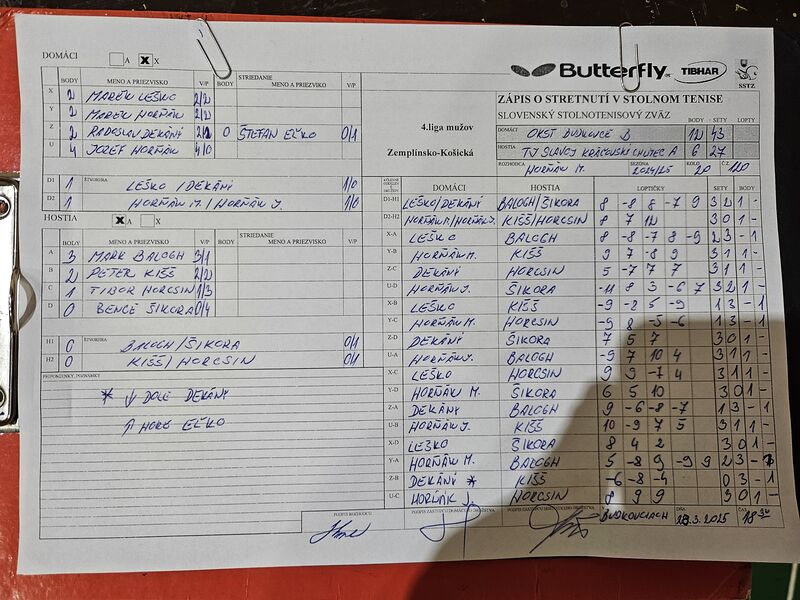 DOMÁCI A X X
BODY MENO A PRIEZVISKO V/P BODY STRIEDANIE MENO A PRIEZVISKO V/P
X 2 MAREK LEŠKO 2/2
Y 2 MAREK HORŇÁK 2/2
Z 2 RADOSLAV DEKÁNY 2/1 0 ŠTEFAN EĽKO 0/1
U 4 JOZEF HORŇÁK 4/0
D1 1 ŠTVORHRA LEŠKO / DEKÁNY 1/0
D2 1 HORŇÁK M. / HORŇÁK J. 1/0
HOSTIA X A X
BODY MENO A PRIEZVISKO V/P BODY STRIEDANIE MENO A PRIEZVISKO V/P
A 3 MARK BALOGH 3/1
B 2 PETER KIŠŠ 2/2
C 1 TIBOR HORCSIN 1/3
D 0 BENCE ŠIKORA 0/4
H1 0 ŠTVORHRA BALOGH / ŠIKORA 0/1
H2 0 KIŠŠ / HORCSIN 0/1
PRIPOMIENKY, POZNÁMKY
* ↓ DOLE DEKÁNY
↑ HORE EĽKO
Butterfly TIBHAR SSTZ
4.liga mužov
Zemplínsko-Košická
ZÁPIS O STRETNUTÍ V STOLNOM TENISE
SLOVENSKÝ STOLNOTENISOVÝ ZVÄZ BODY SETY LOPTY
DOMÁCI OKST BUDKOVCE B 12 43
HOSTIA TJ SLAVOJ KRÁĽOVSKÝ CHLMEC A 6 27
ROZHODCA HORŇÁK M. SEZÓNA 2024/25 KOLO 20 Č.Z. 120
DOMÁCI HOSTIA LOPTIČKY SETY BODY
D1-H1 LEŠKO/DEKÁNY BALOGH/ŠIKORA 8 -8 8 -7 9 3 2 1 -
D2-H2 HORŇÁK M/HORŇÁK J. KIŠŠ/HORCSIN 8 7 12 3 0 1 -
X-A LEŠKO BALOGH 8 -8 -7 8 -9 2 3 - 1
Y-B HORŇÁK M. KIŠŠ 9 7 -8 9 3 1 1 -
Z-C DEKÁNY HORCSIN 5 -7 7 7 3 1 1 -
U-D HORŇÁK J. ŠIKORA -11 8 3 -6 7 3 2 1 -
X-B LEŠKO KIŠŠ -9 -2 5 -9 1 3 - 1
Y-C HORŇÁK M. HORCSIN -9 8 -5 -6 1 3 - 1
Z-D DEKÁNY ŠIKORA 7 5 7 3 0 1 -
U-A HORŇÁK J. BALOGH -9 7 10 4 3 1 1 -
X-C LEŠKO HORCSIN 9 9 -7 4 3 1 1 -
Y-D HORŇÁK M. ŠIKORA 6 5 10 3 0 1 -
Z-A DEKÁNY BALOGH 9 -6 -8 -7 1 3 - 1
U-B HORŇÁK J. KIŠŠ 10 -9 7 5 3 1 1 -
X-D LEŠKO ŠIKORA 8 4 2 3 0 1 -
Y-A HORŇÁK M. BALOGH 5 -8 9 -9 9 2 3 - 1
Z-B DEKÁNY * KIŠŠ -6 -8 -4 0 3 - 1
U-C HORŇÁK J. HORCSIN 8 9 9 3 0 1 -
PODPIS ROZHODCU PODPIS ZÁSTUPCU DOMÁCEHO DRUŽSTVA PODPIS ZÁSTUPCU HOSŤUJÚCEHO DRUŽSTVA V BUDKOVCIACH DŇA 29.3.2025 ČAS 18 30